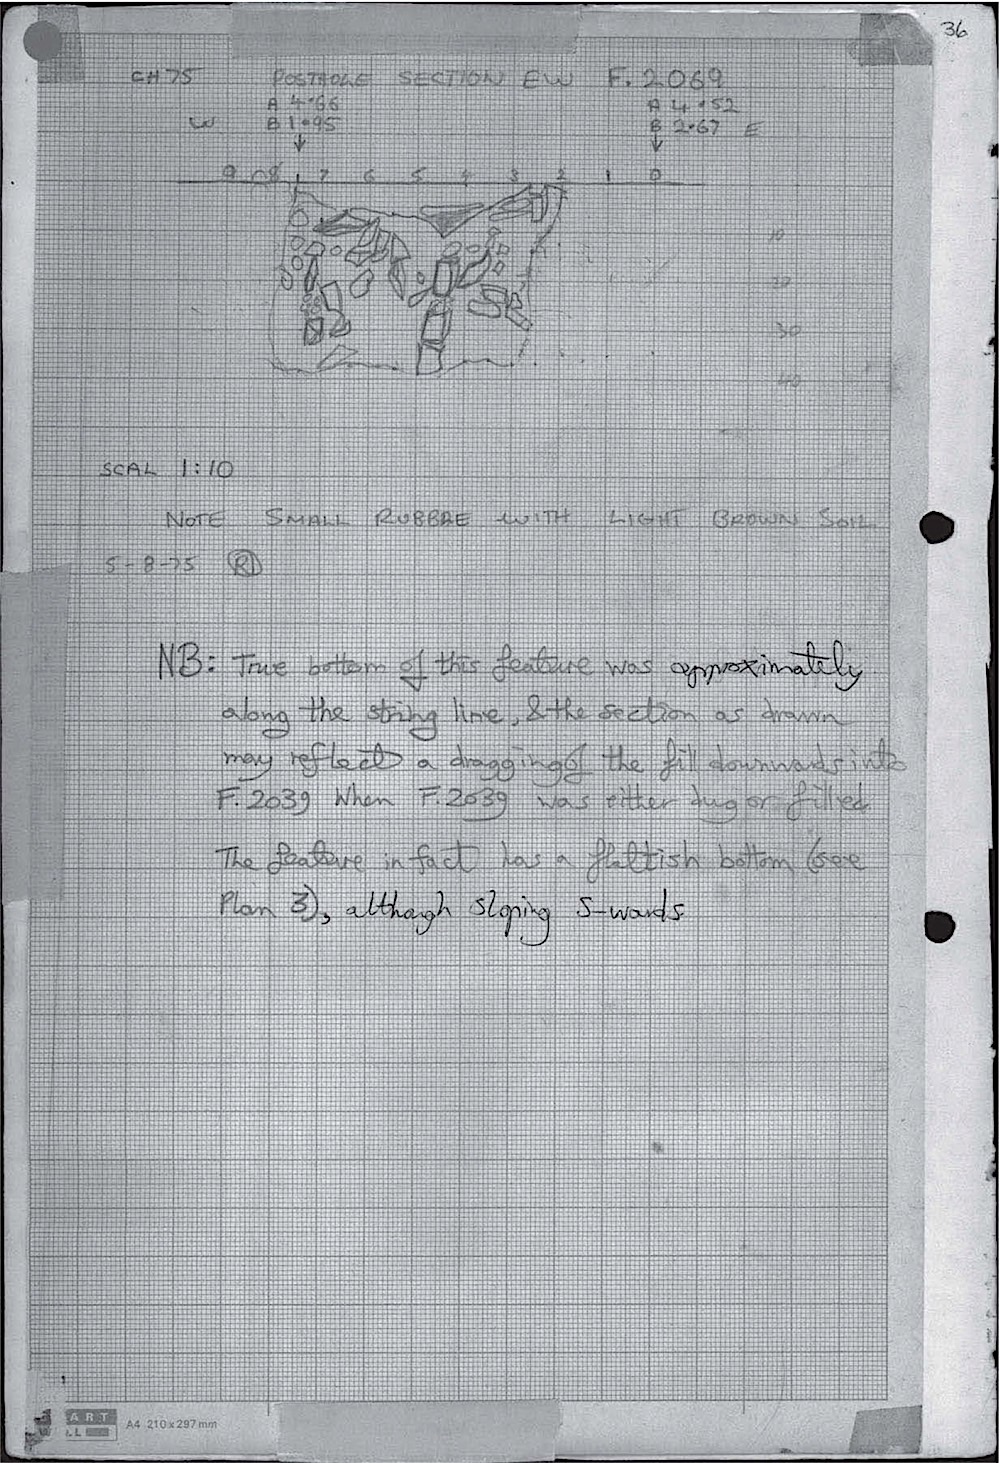 36
CH 75 POSTHOLE SECTION EW F. 2069
A 4.66 A 4.52
W B 1.95 B 2.67 E
9 8 7 6 5 4 3 2 1 0
10
20
30
40
SCAL 1:10
NOTE SMALL RUBBLE WITH LIGHT BROWN SOIL
5-8-75 RD
NB: True bottom of this feature was approximately
along the string line, & the section as drawn
may reflect a dragging of the fill downwards into
F. 2039 when F. 2039 was either dug or filled
The feature in fact has a flattish bottom (see
Plan 3), although sloping S-wards
ART
A4 210 x 297 mm